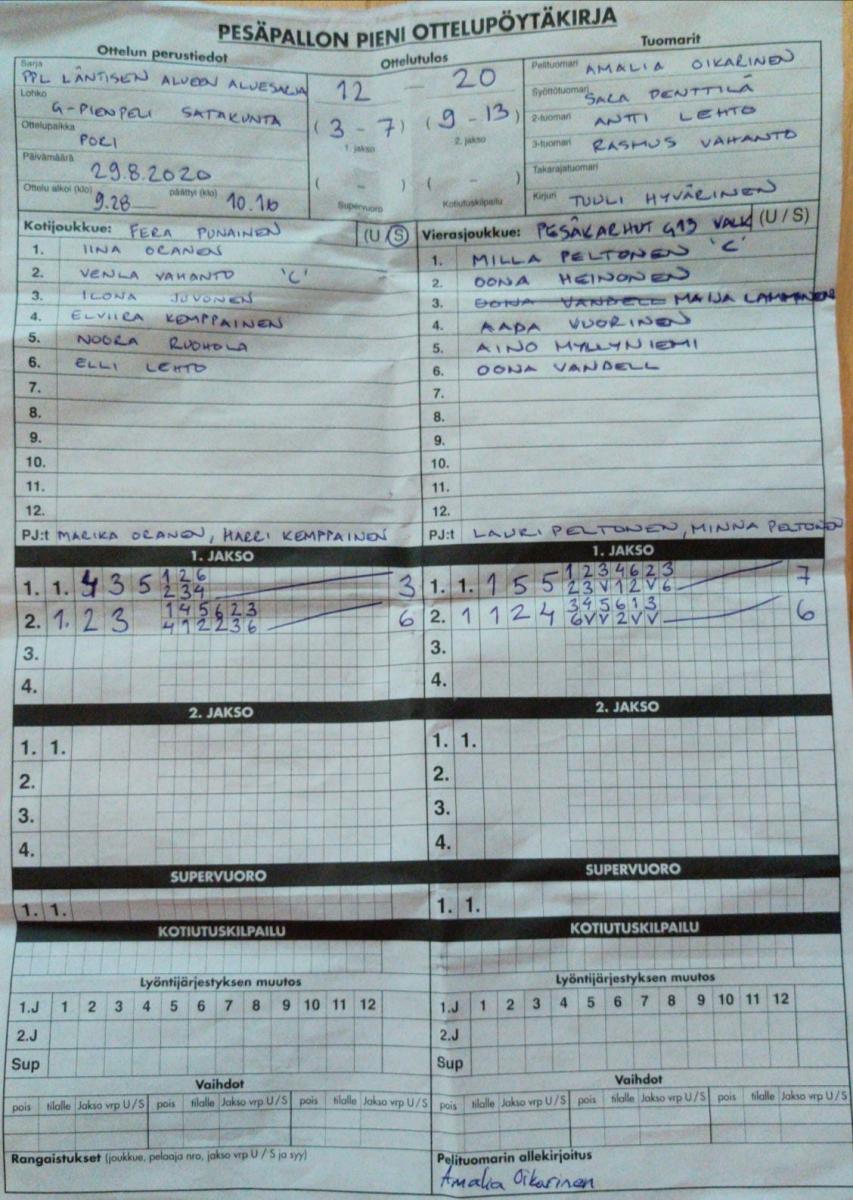 PESÄPALLON PIENI OTTELUPÖYTÄKIRJA
Ottelun perustiedot
Sarja PPL LÄNTISEN ALUEEN ALUESARJA
Lohko G-PIENPELI SATAKUNTA
Ottelupaikka PORI
Päivämäärä 29.8.2020
Ottelu alkoi (klo) 9.28 päättyi (klo) 10.16
Ottelutulos
12 — 20
(3 - 7) (9 - 13)
1. jakso 2. jakso
( - ) ( - )
Supervuoro Kotiutuskilpailu
Tuomarit
Pelituomari AMALIA OIKARINEN
Syöttötuomari SARA PENTTILÄ
2-tuomari ANTTI LEHTO
3-tuomari RASMUS VAHANTO
Takarajatuomari
Kirjuri TUULI HYVÄRINEN
Kotijoukkue: FERA PUNAINEN (U/S)
1. IINA ORANEN
2. VENLA VAHANTO 'C'
3. ILONA JUVONEN
4. ELVIIRA KEMPPAINEN
5. NOORA RUOHOLA
6. ELLI LEHTO
7.
8.
9.
10.
11.
12.
PJ:t MARIKA ORANEN, HARRI KEMPPAINEN
Vierasjoukkue: PESÄKARHUT G13 VALK (U / S)
1. MILLA PELTONEN 'C'
2. OONA HEINONEN
3. OONA VANDELL MAIJA LAMMINEN
4. AADA VUORINEN
5. AINO MYLLYNIEMI
6. OONA VANDELL
7.
8.
9.
10.
11.
12.
PJ:t LAURI PELTONEN, MINNA PELTONEN
1. JAKSO
1. 1. 4 3 5 1 2 6 3
2 3 4
2. 1. 2 3 1 4 5 6 2 3 6
4 1 2 2 3 6
3.
4.
1. JAKSO
1. 1. 1 5 5 1 2 3 4 6 2 3 7
2 3 V 1 2 V 6
2. 1 1 2 4 3 4 5 6 1 3 6
6 V V 2 V V
3.
4.
2. JAKSO
1. 1.
2.
3.
4.
2. JAKSO
1. 1.
2.
3.
4.
SUPERVUORO
1. 1.
SUPERVUORO
1. 1.
KOTIUTUSKILPAILU
KOTIUTUSKILPAILU
Lyöntijärjestyksen muutos
1.J 1 2 3 4 5 6 7 8 9 10 11 12
2.J
Sup
Lyöntijärjestyksen muutos
1.J 1 2 3 4 5 6 7 8 9 10 11 12
2.J
Sup
Vaihdot
pois tilalle Jakso vrp U/S pois tilalle Jakso vrp U/S pois tilalle Jakso vrp U/S
Vaihdot
pois tilalle Jakso vrp U/S pois tilalle Jakso vrp U/S pois tilalle Jakso vrp U/S
Rangaistukset (joukkue, pelaaja nro, jakso vrp U / S ja syy)
Pelituomarin allekirjoitus
Amalia Oikarinen